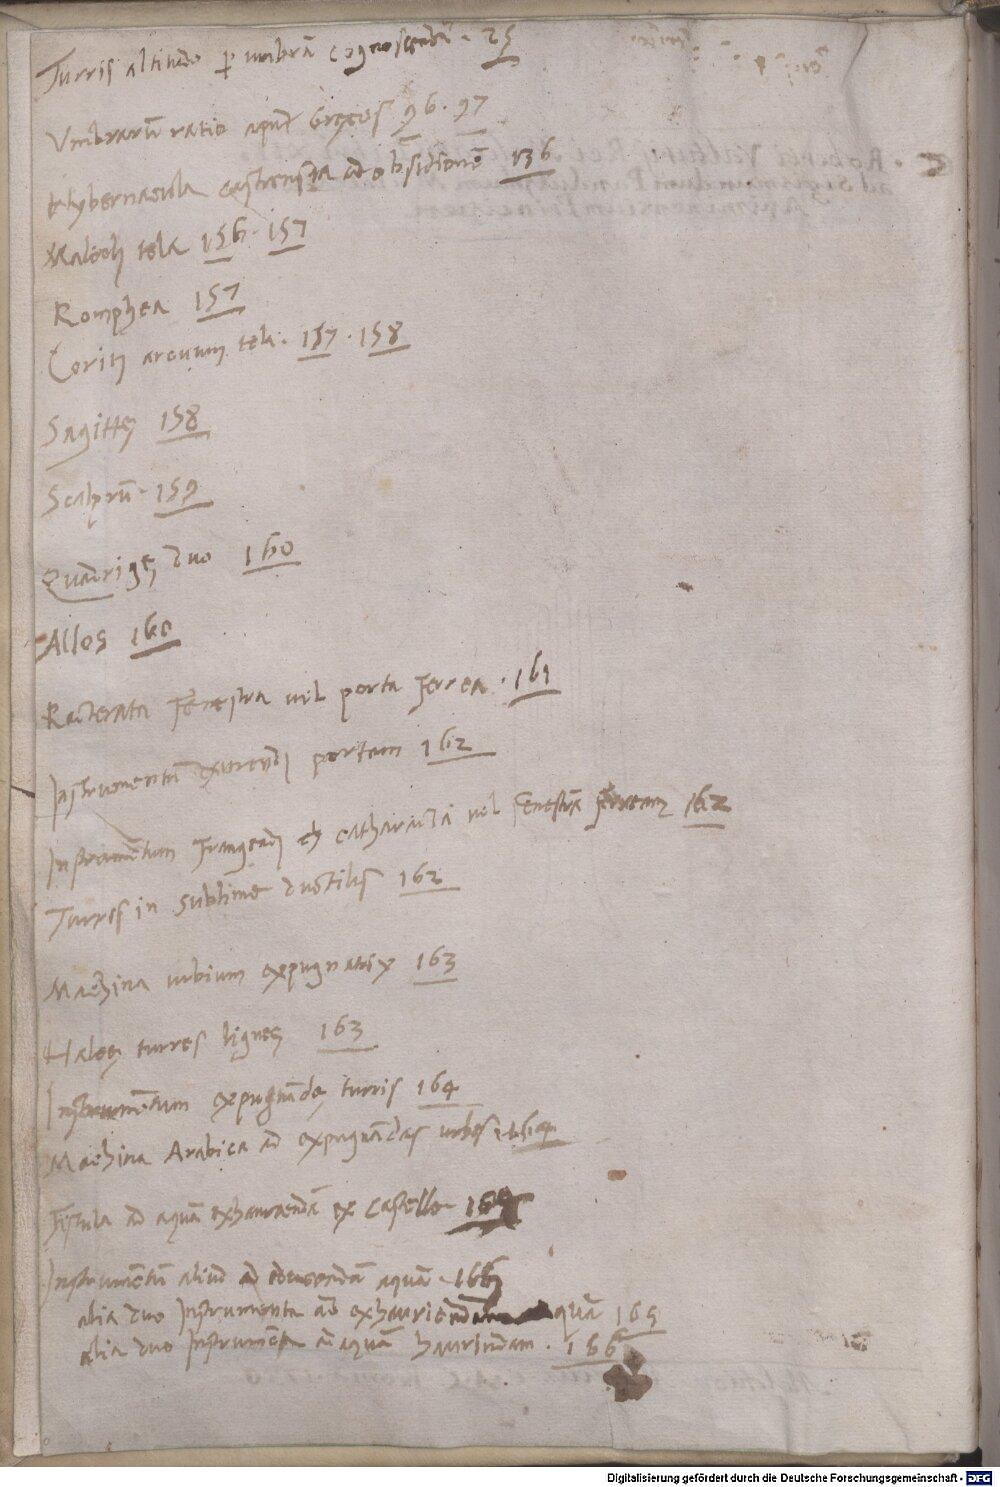 Turris altitudo ꝑ umbrā cognoscenda. 25
Vmbrarū ratio apud Gręcos 96. 97
tabernacula castrensia ad obsidionē 136
Malleoli tela 156. 157
Romphea 157
Coriti arcuum tela. 157. 158
Sagittę 158
Scalprū. 159
Quadrigę duo 160
Allos 160
fenestra vel porta ferrea. 161
Instrumentū portam 162
Instrumentum frangendi catharactā vel fenestrā ferream 162
Turres in sublime ductiles 162
Machina urbium expugnatrix 163
turres ligneę 163
Instrumentum expugnādę turris 164
Machina Arabica ad expugnādas urbes 164
Fistula ad aquā exhauriendā ex castello
Instrumentū aliud ad educendā aquā.
alia duo Instrumenta ad exhauriendā aquā 165
alia duo Instrumēta ad aquā hauriendam. 166
Digitalisierung gefördert durch die Deutsche Forschungsgemeinschaft - DFG